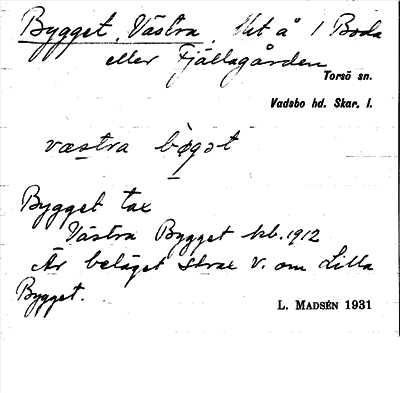 Bygget, Västra, Utt å 1 Boda
eller Fjällagården
Torsö sn.
Vadsbo hd. Skar. l.
væstra bøgət
Bygget tax
Västra Bygget kb. 1912
Är beläget strax V. om Lilla
Bygget.
L. Madsén 1931